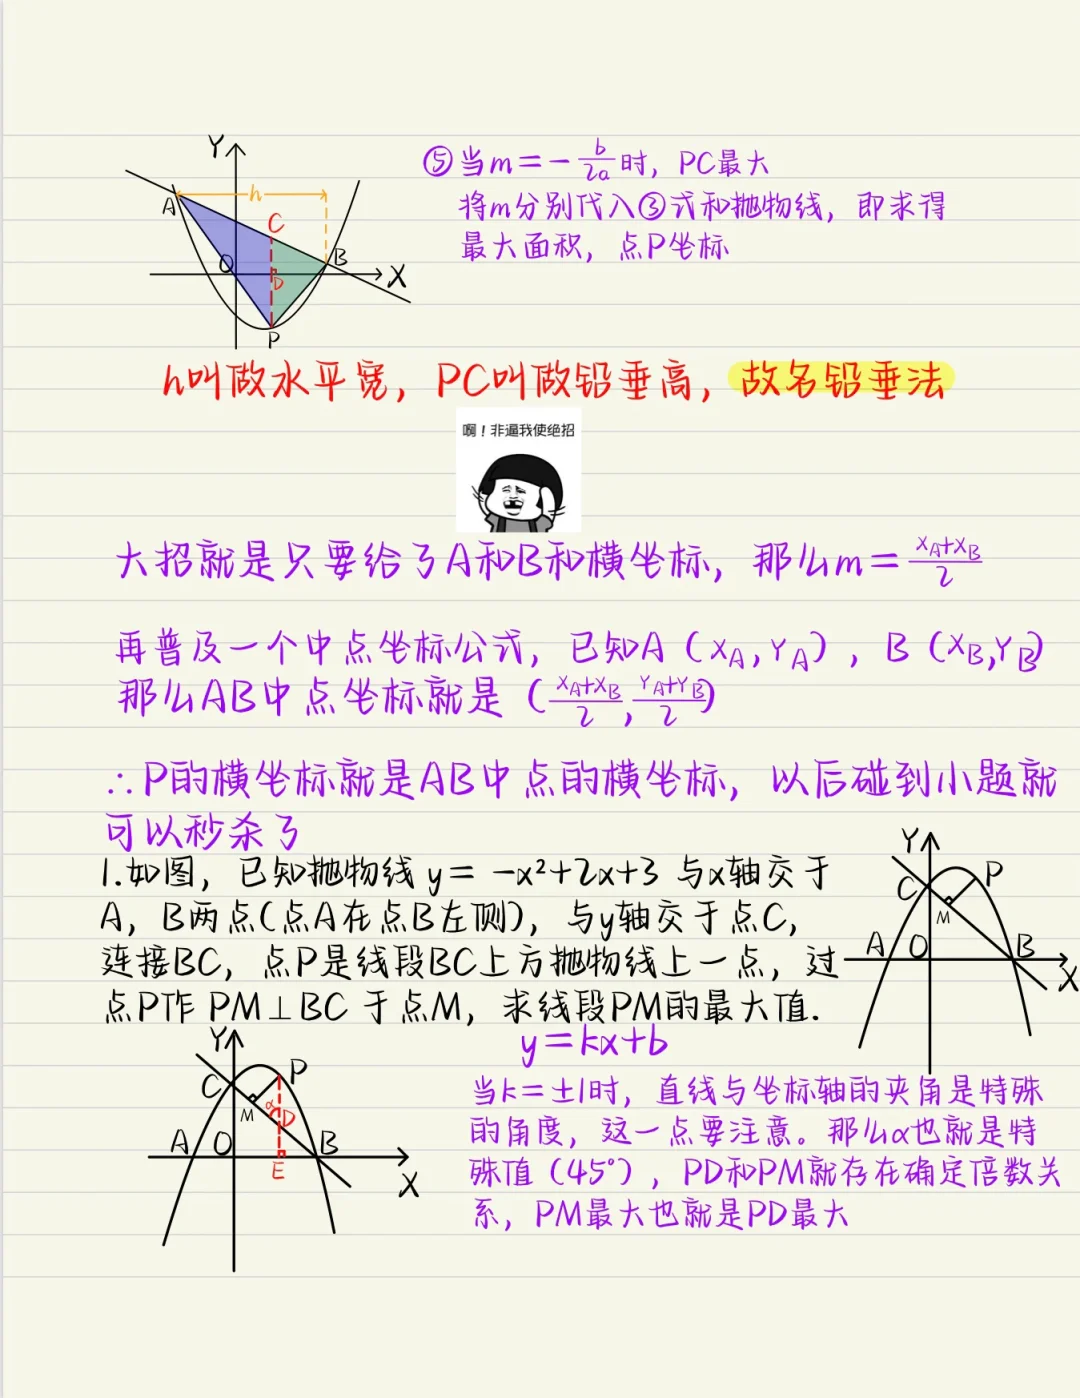 ⑤当m=-b/2a时，PC最大
将m分别代入③式和抛物线，即求得
最大面积，点P坐标
Y
h
A
C
O
B
D
X
P
h叫做水平宽，PC叫做铅垂高，故名铅垂法
啊！非逼我使绝招
大招就是只要给了A和B和横坐标，那么m=xA+xB/2
再普及一个中点坐标公式，已知A（xA,YA），B（xB,YB）
那么AB中点坐标就是（xA+xB/2,YA+YB/2）
∴P的横坐标就是AB中点的横坐标，以后碰到小题就
可以秒杀了
1.如图，已知抛物线y=-x²+2x+3与x轴交于
A，B两点(点A在点B左侧)，与y轴交于点C，
连接BC，点P是线段BC上方抛物线上一点，过
点P作PM⊥BC于点M，求线段PM的最大值.
Y
C
P
M
A
O
B
X
Y
C
P
M
α
D
A
O
B
E
X
y=kx+b
当k=±1时，直线与坐标轴的夹角是特殊
的角度，这一点要注意。那么α也就是特
殊值（45°），PD和PM就存在确定倍数关
系，PM最大也就是PD最大